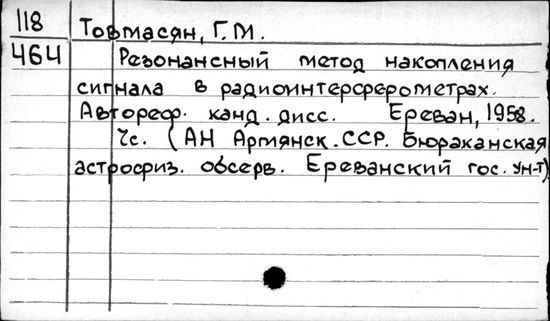 118 Товмасян, Г.М.
464 Резонансный метод накопления
сигнала в радиоинтерферометрах.
Автореф. канд. дисс. Ереван, 1958.
7с. (АН Армянск. ССР. Бюраканская
астрофиз. обсерв. Ереванский гос. ун-т)